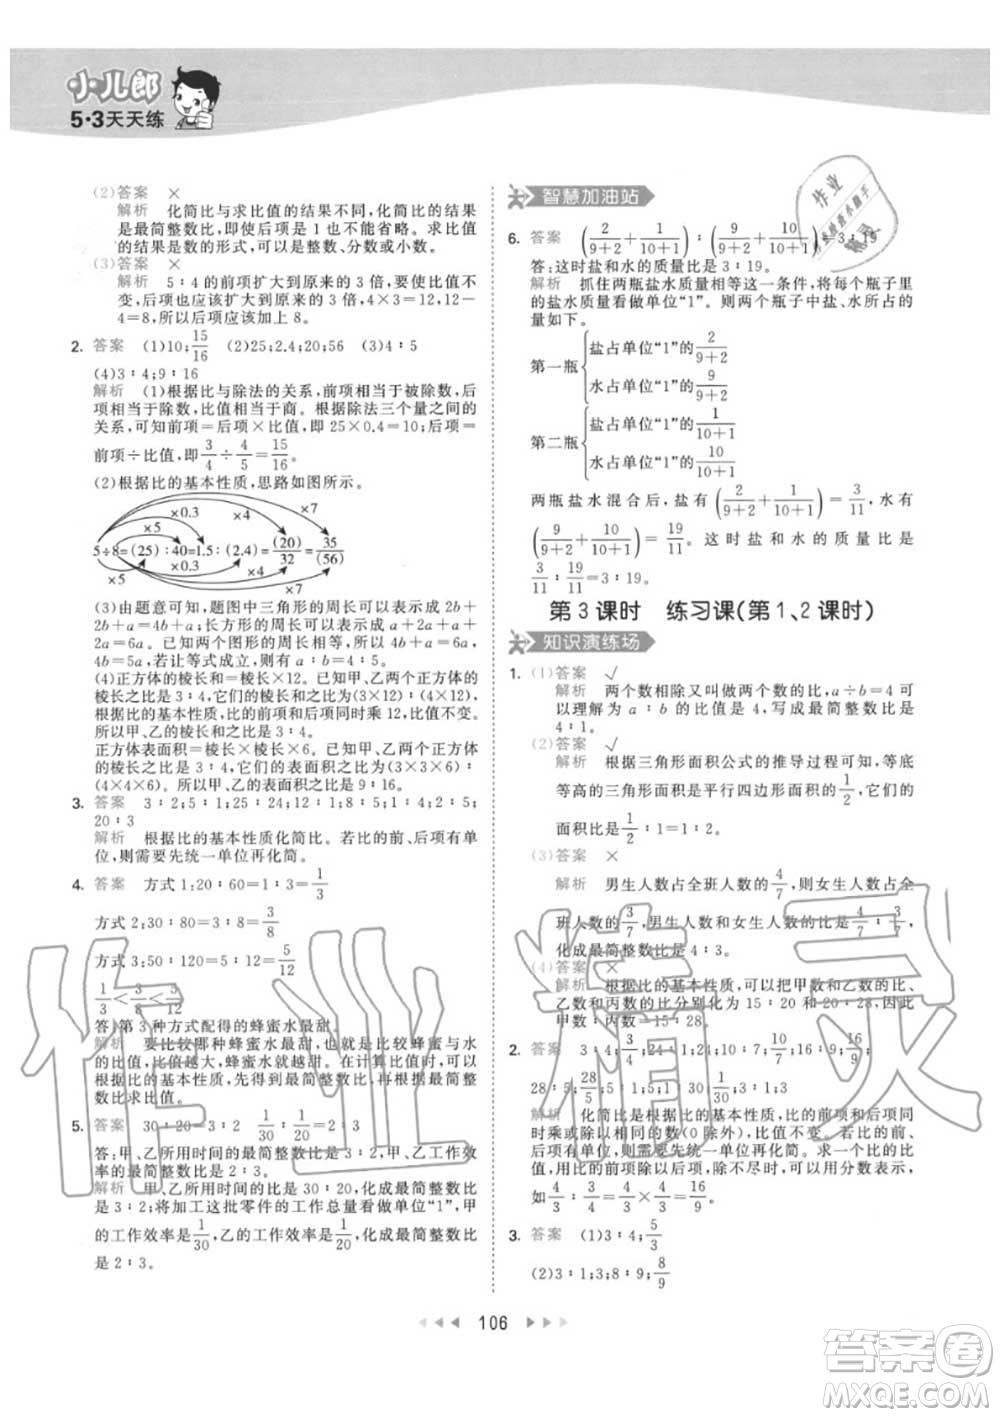 小儿郎
5·3天天练
(2)答案 ×
解析 化简比与求比值的结果不同,化简比的结果
是最简整数比,即使后项是1也不能省略。求比值的
结果是数的形式,可以是整数、分数或小数。
(3)答案 ×
解析 5∶4的前项扩大到原来的3倍,要使比值不
变,后项也应该扩大到原来的3倍,即4×3=12,12-
4=8,所以后项应该加上8。
2. 答案 (1)10;15/16 (2)25;2.4;20;56 (3)4∶5
(4)3∶4;9∶16
解析 (1)根据比与除法的关系,前项相当于被除
数,后项相当于除数,比值相当于商。根据除法三个量之间的
关系,可知前项=后项×比值,即25×0.4=10;后项=
前项÷比值,即3/4÷4/5=15/16。
(2)根据比的基本性质,思路如图所示。
×7
×4
×0.3
×5
5÷8=(25)∶40=1.5∶(2.4)=(20)/32=35/(56)
×5
×0.3
×4
×7
(3)由题意可知,题图中三角形的周长可以表示成2b+
2b+2b=6b,长方形的周长可以表示成a+2a+a+
2a=6a。已知两个图形的周长相等,所以可以写成6a=
6b=5a,若让等式成立,则a∶b=4∶5。
(4)正方体的棱长总和=棱长×12。甲、乙两个正方体的
棱长之比是3∶4,它们的棱长总和之比是(3×12)∶(4×12),
根据比的基本性质,比的前项和后项同时乘12,比值不变。
所以甲、乙的棱长总和之比是3∶4。
正方体表面积=棱长×棱长×6。甲、乙两个正方体
的棱长之比是3∶4,它们的表面积之比是(3×3×6)∶
(4×4×6)。所以甲、乙的表面积之比是9∶16。
3. 答案 3∶2;5∶1;24∶1;12∶1;8∶5;1∶4;5∶2;
20∶3
解析 根据比的基本性质化简比。若比的前、后项有单
位,则需要先统一单位再化简。
4. 答案 方式1;20∶60=1∶3=1/3
方式2;30∶80=3∶8=3/8
方式3;50∶120=5∶12=5/12
1/3<3/8<5/12
答:第3种方式配得的蜂蜜水最甜。
解析 要比较哪种蜂蜜水最甜,也就是比较蜂蜜与水
的比值,比值越大,蜂蜜水就越甜。在计算比值时,可以
根据比的基本性质,先得到最简整数比,再根据最简整
数比求比值。
5. 答案 30∶20=3∶2 1/30∶1/20=2∶3
答:甲、乙所用时间的最简整数比是3∶2,甲、乙工作效
率的最简整数比是2∶3。
解析 甲、乙所用时间的比是30∶20,化成最简整数比
是3∶2;将加工这批零件的工作总量看成单位"1",甲
的工作效率是1/30,乙的工作效率是1/20,化成最简整数比
是2∶3。
智慧加油站
6. 答案 (2/(9+2)+1/(10+1))∶(9/(9+2)+10/(10+1))=3∶19
答:这时盐和水的质量比是3∶19。
解析 抓住两瓶盐水质量相等这一条件,将每个瓶子里
的盐水质量看做单位"1"。则两个瓶子中盐、水所占的
量如下。
第一瓶 盐占单位"1"的2/(9+2)
水占单位"1"的9/(9+2)
第二瓶 盐占单位"1"的1/(10+1)
水占单位"1"的10/(10+1)
两瓶盐水混合后,盐有(2/(9+2)+1/(10+1))=3/11,水有
(9/(9+2)+10/(10+1))=19/11。这时盐水的质量比是
3/11∶19/11=3∶19。
第3课时 练习课(第1、2课时)
知识演练场
1. (1)答案 √
解析 两个数相除又叫做两个数的比,a÷b=4可
以理解为a∶b的比值是4,写成最简整数比是
4∶1。
(2)答案 √
解析 根据三角形面积公式的推导过程可知,等底
等高的三角形面积是平行四边形面积的1/2,所以它们的
面积比是1/2∶1=1∶2。
(3)答案 ×
解析 男生人数占全班人数的4/7,则女生人数占全
班人数的3/7,男生人数和女生人数的比是4/7∶3/7,
化成最简整数比是4∶3。
(4)答案 ×
解析 根据比的基本性质,可将甲数和乙数的比、
乙数和丙数的比分别化为15∶20和20∶28,因此
甲数∶丙数=15∶28。
2. 答案 3∶4;3/4;24∶1;24;10∶7;10/7;16∶9;16/9;
28∶5;28/5;5∶4;5/4;24∶25;24/25;3∶1;3
解析 化简比根据比的基本性质,比的前项和后项同
时乘或除以相同的数(0除外),比值不变。若前、后项
有单位的,则需要先统一单位再化简。求比的比值
用比的前项除以后项,除不尽时,可以用分数表示,
如4/3∶3/4=4/3×4/3=16/9。
3. 答案 (1)3∶4;5/3
(2)3∶1;3;8∶9;8/9
106
作业精灵
答案圈
MXQE.COM